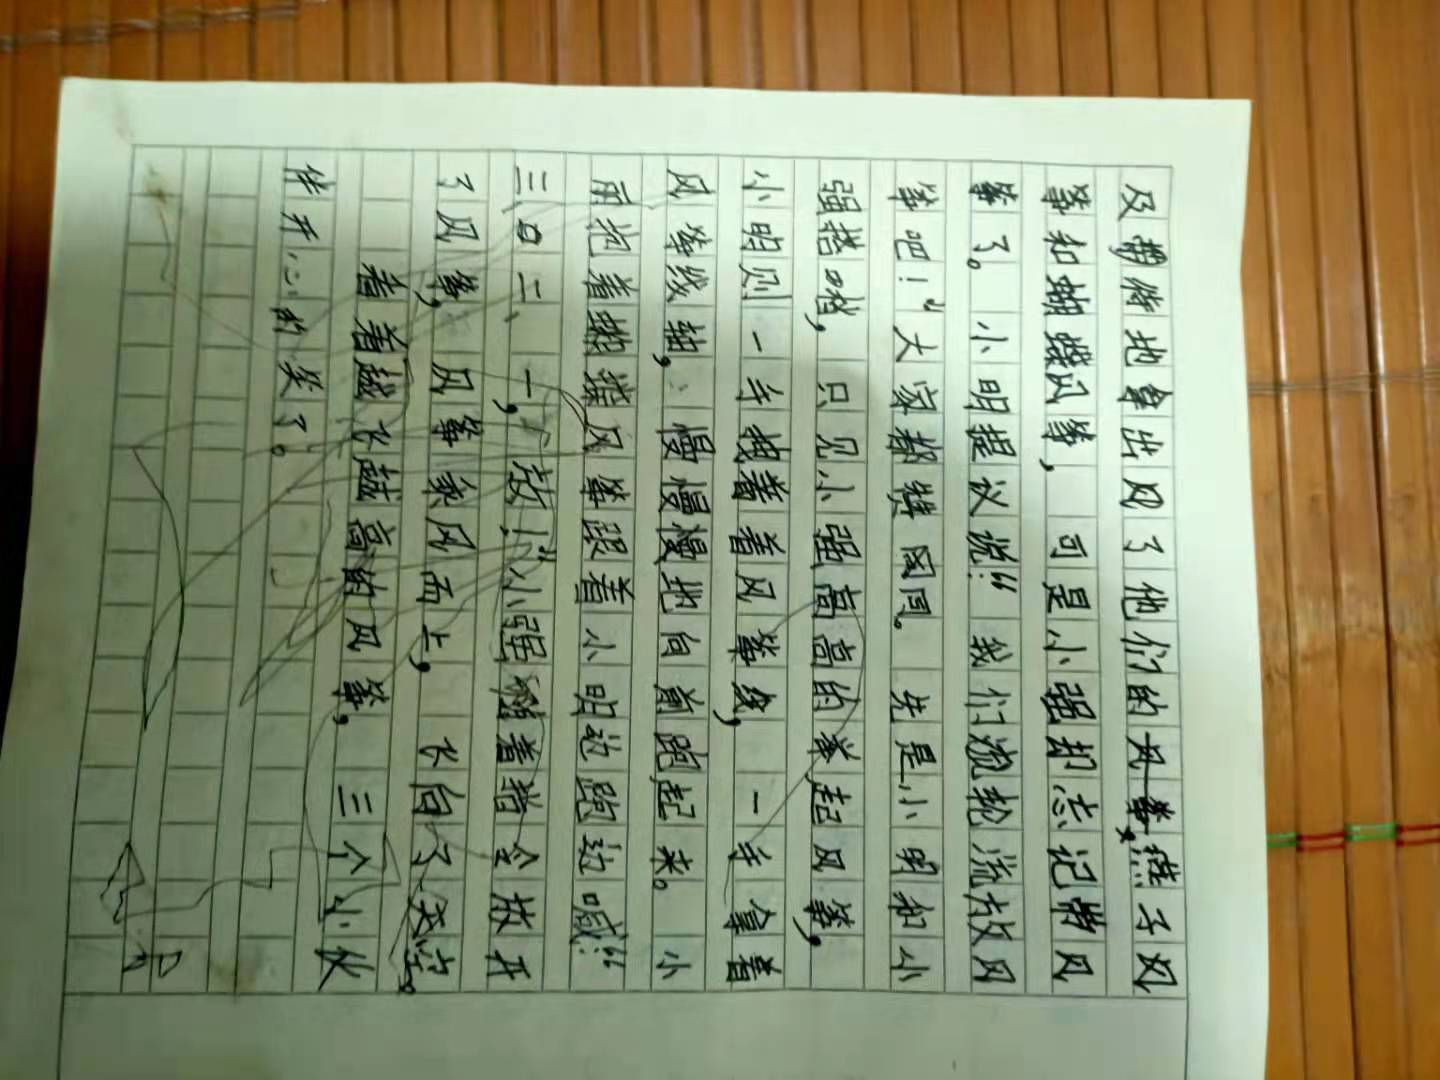 及带备地拿出风了他们的风筝,燕子风
筝和蝴蝶风筝,可是小强却忘记带风
筝了。小明提议说:“我们流轮流放风
筝吧!”大家都赞同。先是小明和小
强搭档,只见小强高高的拳起风筝,
小明则一手拽着着风筝线,一手拿着
风筝线轴,慢慢慢地向前跑起来。小
雨抱着蝴蝶风筝跟着小明边跑边喊:“
三、二、一,放!”小强随着指令放开
了风筝,风筝乘风而上,飞向了天空。
看着越飞越高的风筝,三个小伙
伴开心的笑了。